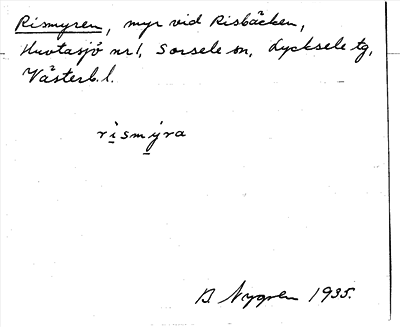 Rismyren, myr vid Risbäcken,
Huvtasjö nr 1, Sorsele sn, Lycksele tg,
Västerb. l.
rismyra
B Nygren 1935.